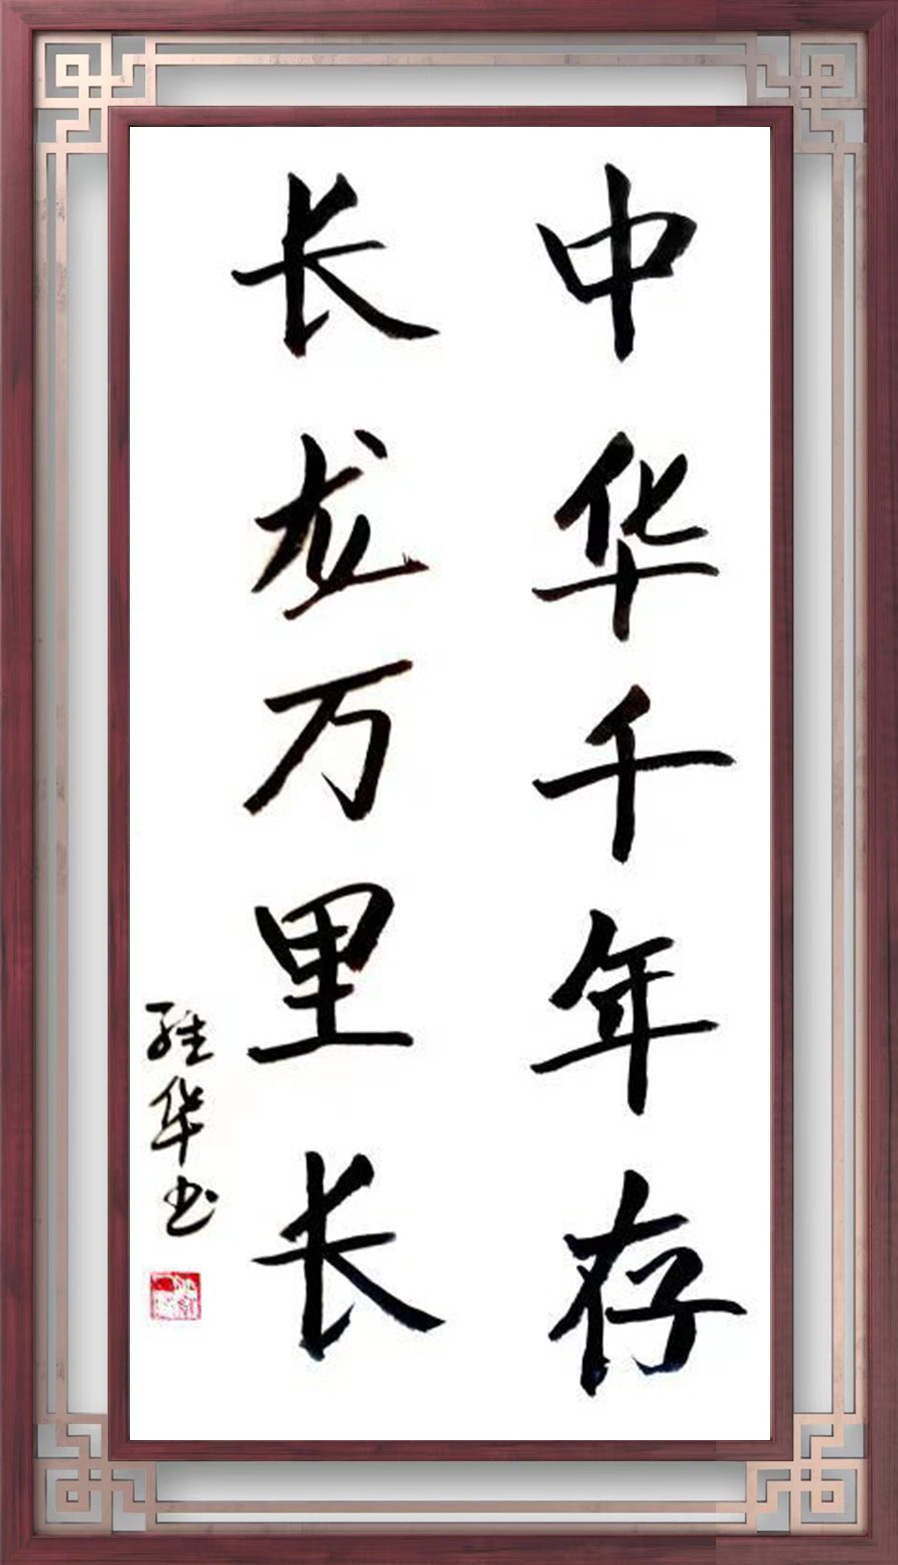 中华千年存
长龙万里长
经华书